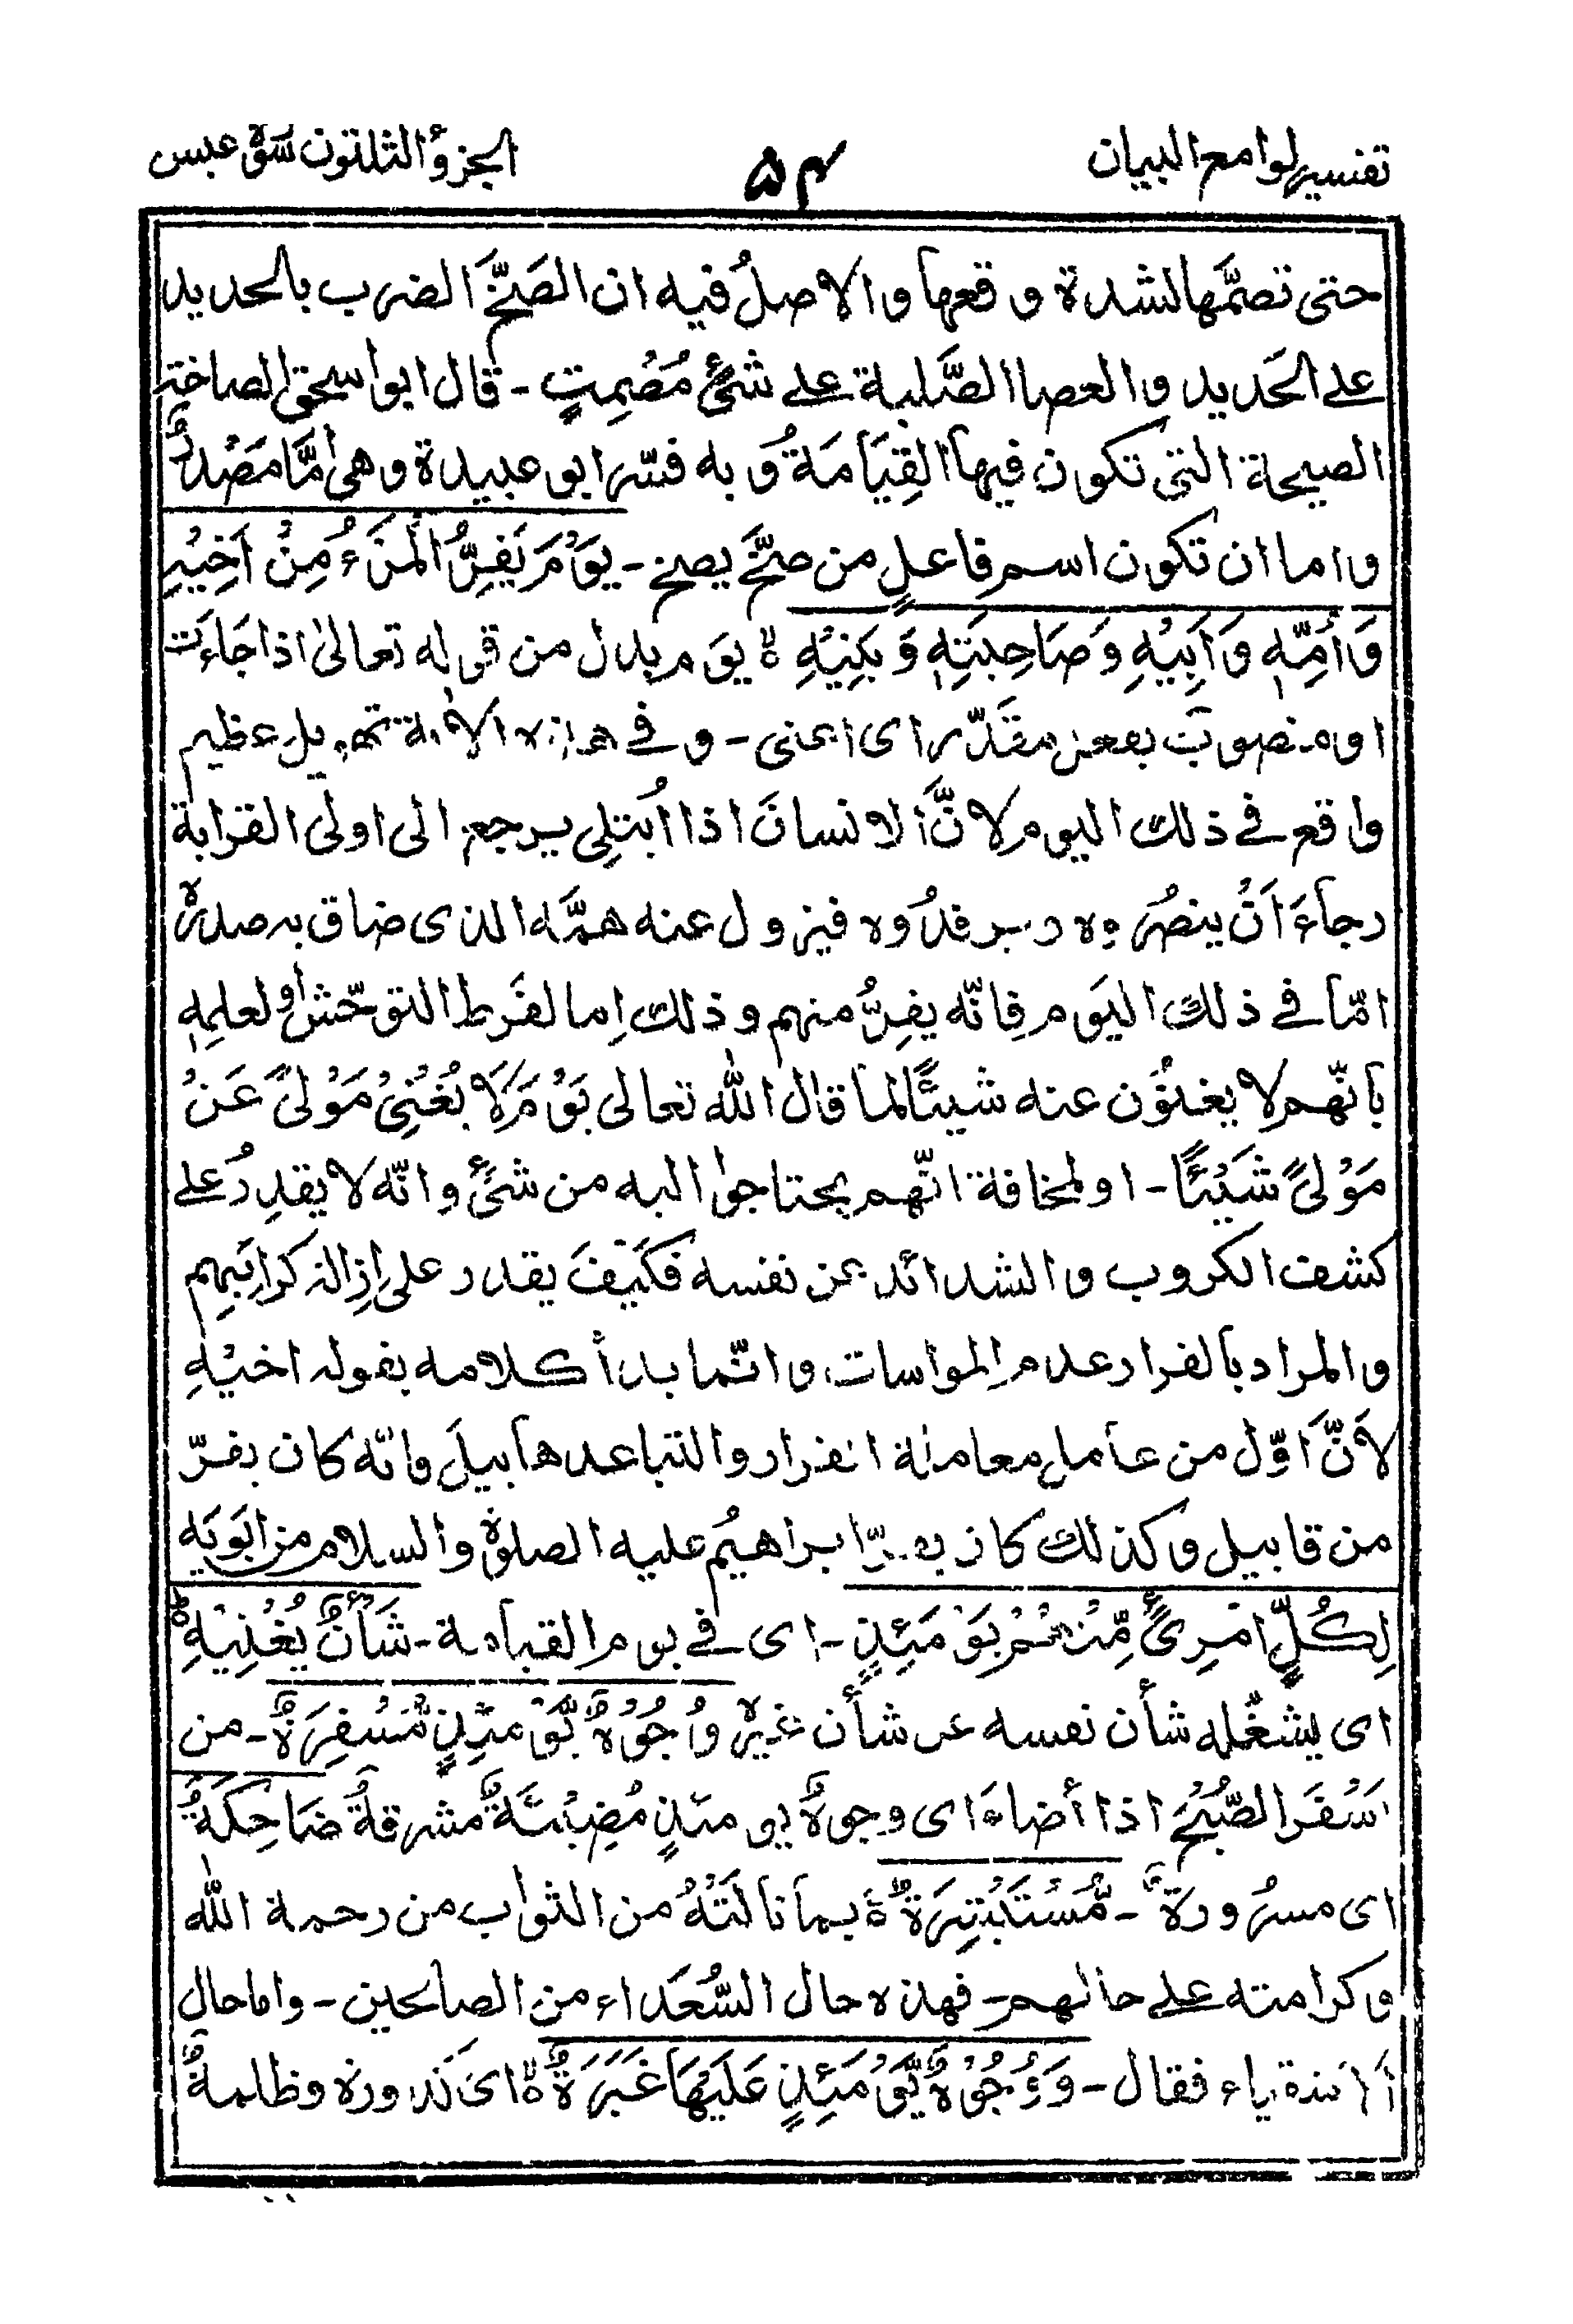 تفسیر لوامع البیان
۵۴
الجزؤ الثلثون سورة عبس
حتی تصمّها لشدة وقعها والاصلُ فيه ان الصَخَّ الضرب بالحديد
علے الحَديد والعصا الصَّلبة علے شئٍ مُصْمِتٍ - قال ابو اسحٰق الصاخة
الصيحة التی تكون فيها القِيَامَةُ وبه فسّر ابو عبيدة وهی اِمَّا مَصْدرٌ
واما ان تكون اسم فاعلٍ من صَخَّ يصخ - يَوْمَ يَفِرُّ الْمَرْءُ مِنْ اَخِيْهِ
وَاُمِّهٖ وَاَبِيْهِ وَصَاحِبَتِهٖ وَبَنِيْهِ ۃ يوم بدل من قوله تعالیٰ اذا جَاءَت
او منصوبٌ بفعل مقدّر ای اعنی - وفے هذه الاٰية تهويل عظيم
واقع فے ذلك اليوم لانَّ الانسانَ اذا ابُتلِی يرجع الی اولی القرابة
رجاءَ اَنْ ينصُرُوه ويرفدُوه فيزول عنه همَّه الذی ضاق به صدرهٗ
امّا فے ذلك اليَوم فانّه يفِرُّ منهم وذلك اِما لفَرط التوحّش او لعلمِهٖ
بانّهم لا يغنُوْن عنه شيئًا لما قال اللّٰه تعالی يَوْمَ لَا يُغْنِیْ مَوْلیً عَنْ
مَوْلیً شَيْئًا - او لمخافة انّهم يحتاجوا اليه من شیٍٔ وانّه لا يقدِرُ علے
كشف الكروب والشدائد عن نفسه فكَيْفَ يقدر علی اِزالة كرابَتِهِم
والمراد بالفرار عدم المواسات وانّما بدأ كلامه بقوله اخيْهِ
لانَّ اَوّل من عامل معاملة الفرار والتباعد هابيلَ فانّه كان يفرّ
من قابيل وكذلك كان يفرّ ابراهيمُ عليه الصلوٰة والسلام من ابوَيه
لِكُلِّ امْرِیٍٔ مِّنْهُمْ يَوْمَئِذٍ - ای فے يوم القيامة - شَاْنٌ يُّغْنِيْهِ ؕ
ای يشغّله شأن نفسه عن شأن غيرهٖ وُجُوْهٌ يَّوْمَئِذٍ مُّسْفِرَةٌ - من
اَسْفَرَ الصُّبْحُ اذا أضاءَ ای وجوهٌ يومئذٍ مُضِيْئَةٌ مشرقةٌ ضَاحِكَةٌ
ای مسرُورةٌ - مُّسْتَبْشِرَةٌ ۃ بما نالَتْهُ من الثواب من رحمة اللّٰه
وكرامته علے حالهم - فهذه حال السُّعَداء من الصالحين - واما حال
فقال - وَوُجُوْهٌ يَّوْمَئِذٍ عَلَيْهَا غَبَرَةٌ ۃ ای كدورة وظلمةٌ